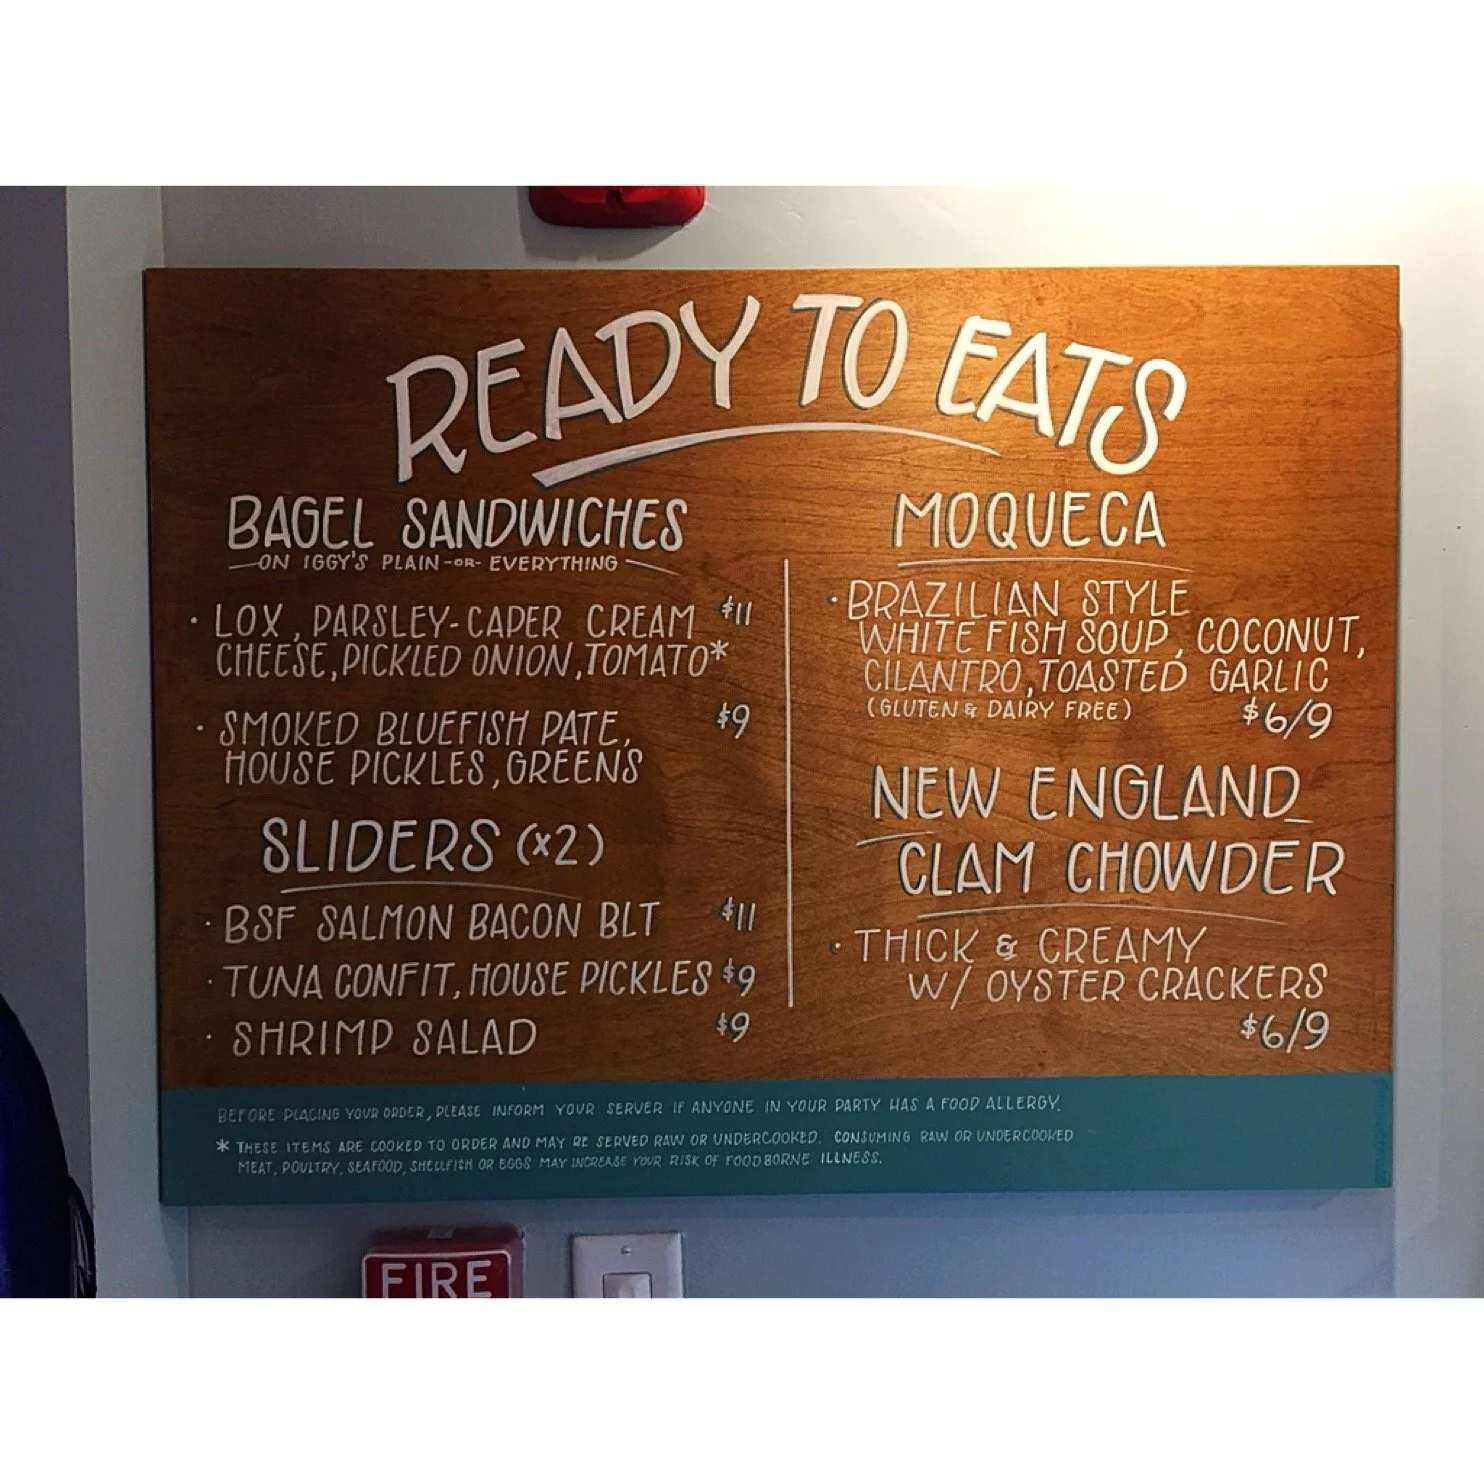 READY TO EATS
BAGEL SANDWICHES
ON IGGY'S PLAIN -OR- EVERYTHING
· LOX, PARSLEY-CAPER CREAM $11
CHEESE, PICKLED ONION, TOMATO*
· SMOKED BLUEFISH PATE, $9
HOUSE PICKLES, GREENS
SLIDERS (x2)
· BSF SALMON BACON BLT $11
· TUNA CONFIT, HOUSE PICKLES $9
· SHRIMP SALAD $9
MOQUECA
· BRAZILIAN STYLE
WHITE FISH SOUP, COCONUT,
CILANTRO, TOASTED GARLIC
(GLUTEN & DAIRY FREE) $6/9
NEW ENGLAND
CLAM CHOWDER
· THICK & CREAMY
W/ OYSTER CRACKERS
$6/9
BEFORE PLACING YOUR ORDER, PLEASE INFORM YOUR SERVER IF ANYONE IN YOUR PARTY HAS A FOOD ALLERGY.
* THESE ITEMS ARE COOKED TO ORDER AND MAY BE SERVED RAW OR UNDERCOOKED. CONSUMING RAW OR UNDERCOOKED
MEAT, POULTRY, SEAFOOD, SHELLFISH OR EGGS MAY INCREASE YOUR RISK OF FOODBORNE ILLNESS.
FIRE